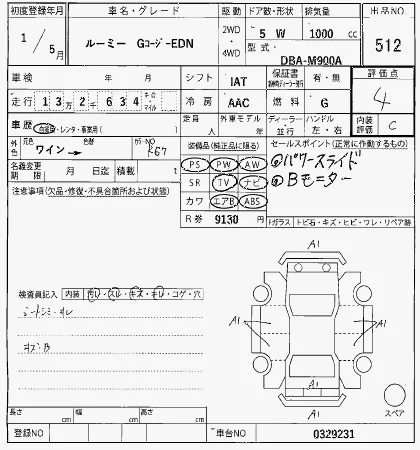 初度登録年月 車名・グレード 駆動 ドア数・形状 排気量 出品NO
1/5月 ルーミー Gコージ-EDN 2WD・4WD 5 W 1000 cc 512
型式 DBA-M900A
車検 年 月 シフト IAT 保証書 有・無 評価点
走行 13万2千634 キロ・マイル 冷房 AAC 燃料 G 4
車歴 自家用・レンタ・事業用( ) 定員 人 外車モデル 年 ディーラー・並行 ハンドル 左・右 内装評価 C
外色 元色 ワイン → 色替 カラーNO R67 装備品(純正品に限る) セールスポイント(正常に作動するもの)
PS PW AW ①パワースライド
名義変更期限 月 日迄 積載 t SR TV ナビ ②Bモニター
注意事項(欠品・修復・不具合箇所および状態) カワ エアB ABS
R券 9130 円 Fガラス トビ石・キズ・ヒビ・ワレ・リペア跡
A1
検査員記入 内装 汚レ・スレ・キズ・キレ・コゲ・穴
シートシミ・キレ
A1 A1
キズB
A1
スペア
長さ cm 幅 cm 高さ cm
登録NO 車台NO 0329231